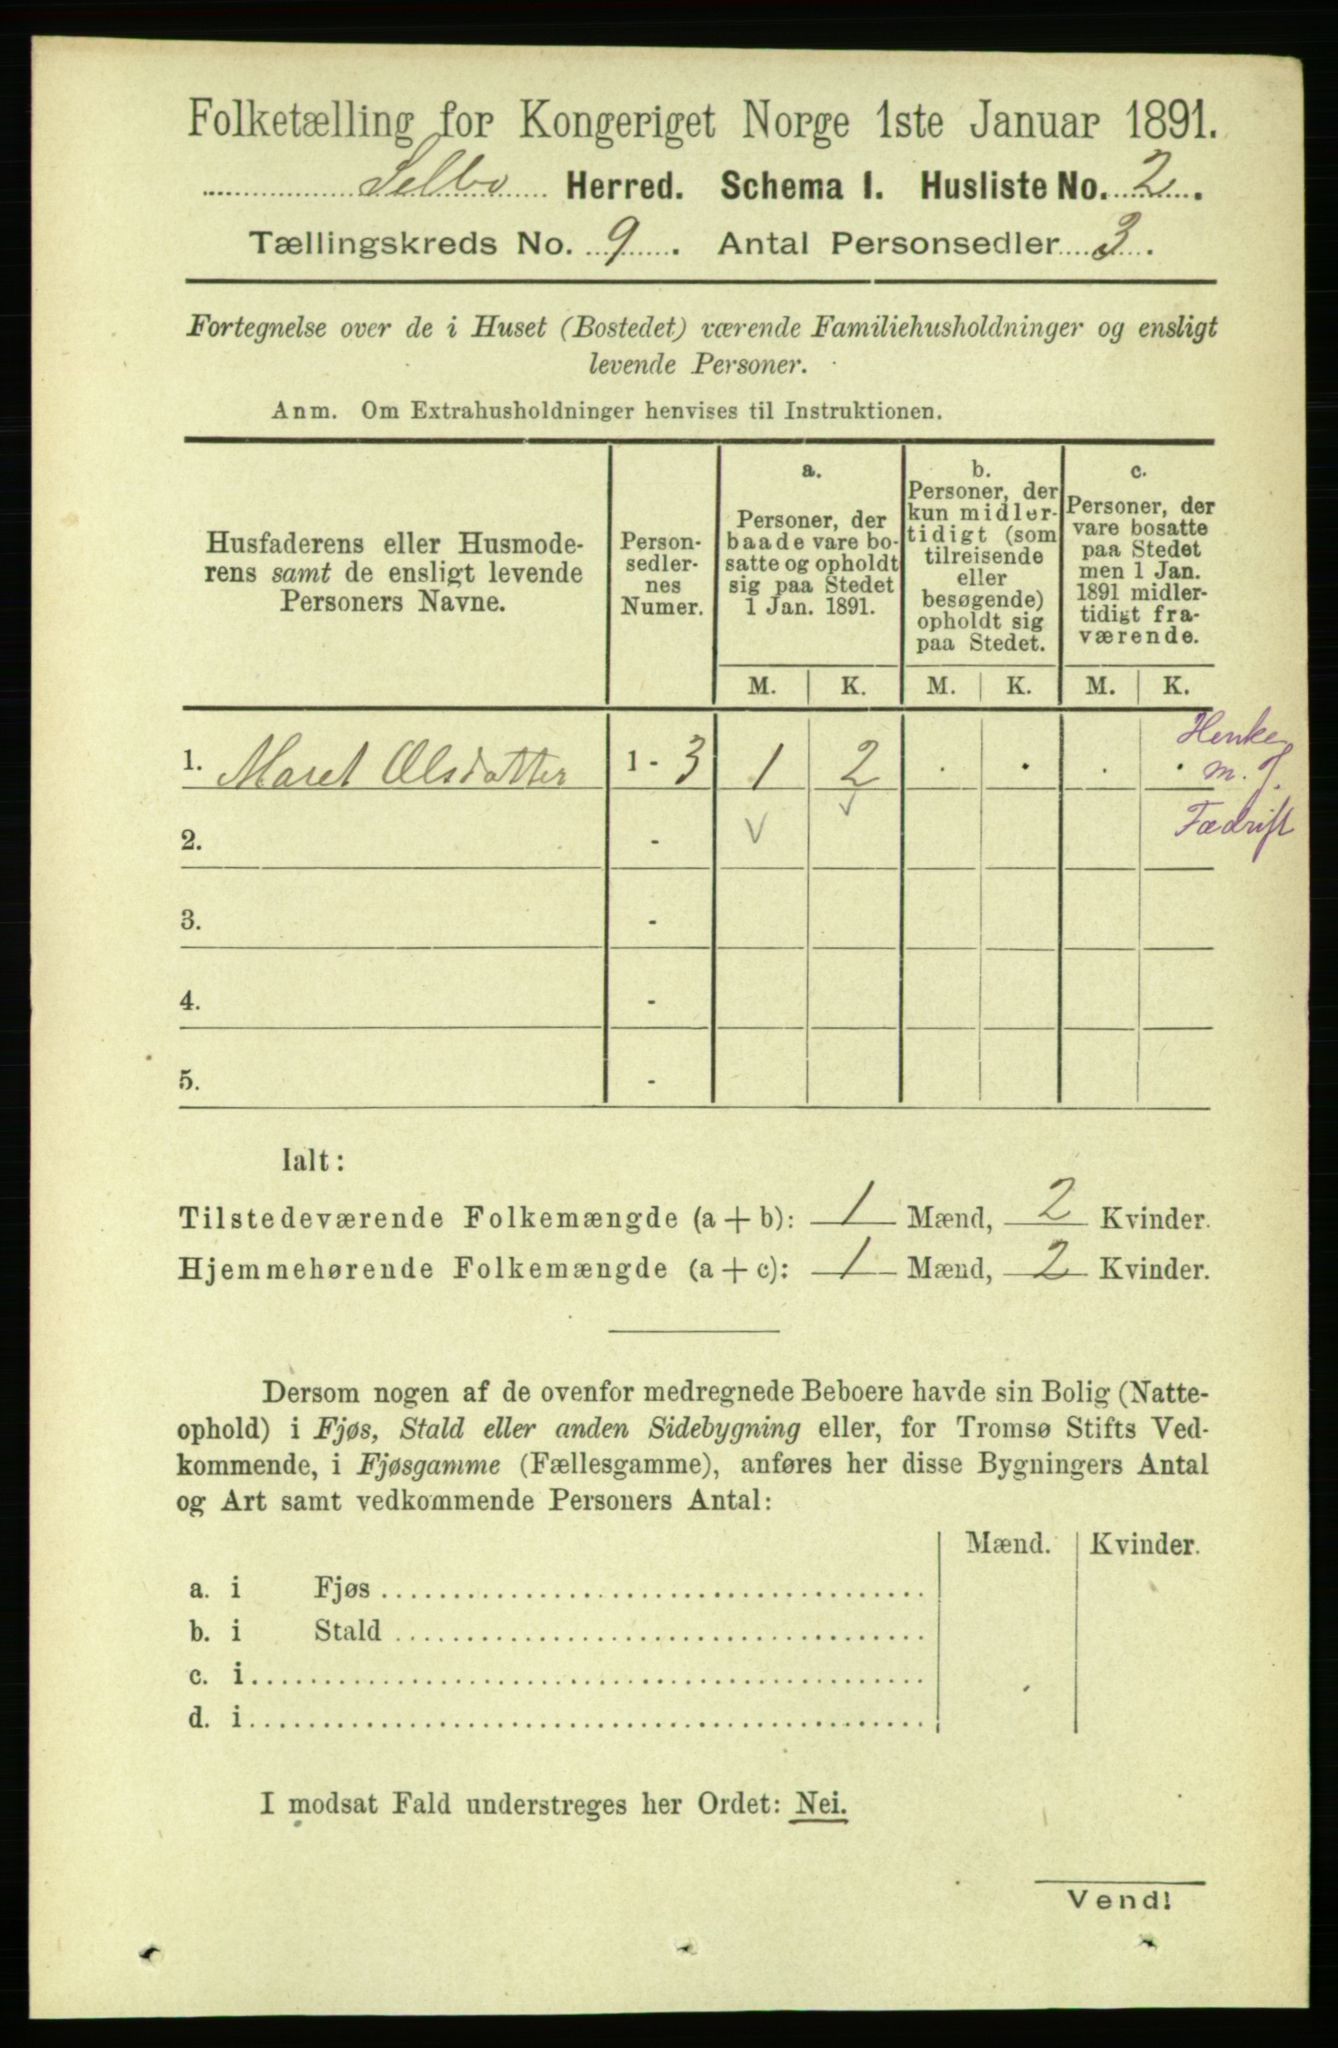 Folketælling for Kongeriget Norge 1ste Januar 1891.
Selbo Herred. Schema I. Husliste No. 2.
Tællingskreds No. 9. Antal Personsedler 3.
Fortegnelse over de i Huset (Bostedet) værende Familiehusholdninger og ensligt
levende Personer.
Anm. Om Extrahusholdninger henvises til Instruktionen.
Husfaderens eller Husmode-
rens samt de ensligt levende
Personers Navne.
Person-
sedler-
nes
Numer.
a.
Personer, der
baade vare bo-
satte og opholdt
sig paa Stedet
1 Jan. 1891.
b.
Personer, der
kun midler-
tidigt (som
tilreisende
eller
besøgende)
opholdt sig
paa Stedet.
c.
Personer, der
vare bosatte
paa Stedet
men 1 Jan.
1891 midler-
tidigt fra-
værende.
M. K. M. K. M. K.
1. Maret Olsdatter 1 - 3 1 2 . . . .
Henke
m. J.
Fædrift
2. - V v
3. -
4. -
5. -
Ialt:
Tilstedeværende Folkemængde (a + b): 1 Mænd, 2 Kvinder.
Hjemmehørende Folkemængde (a + c): 1 Mænd, 2 Kvinder.
Dersom nogen af de ovenfor medregnede Beboere havde sin Bolig (Natte-
ophold) i Fjøs, Stald eller anden Sidebygning eller, for Tromsø Stifts Ved-
kommende, i Fjøsgamme (Fællesgamme), anføres her disse Bygningers Antal
og Art samt vedkommende Personers Antal:
Mænd. Kvinder.
a. i Fjøs
b. i Stald
c. i
d. i
I modsat Fald understreges her Ordet: Nei.
Vend!